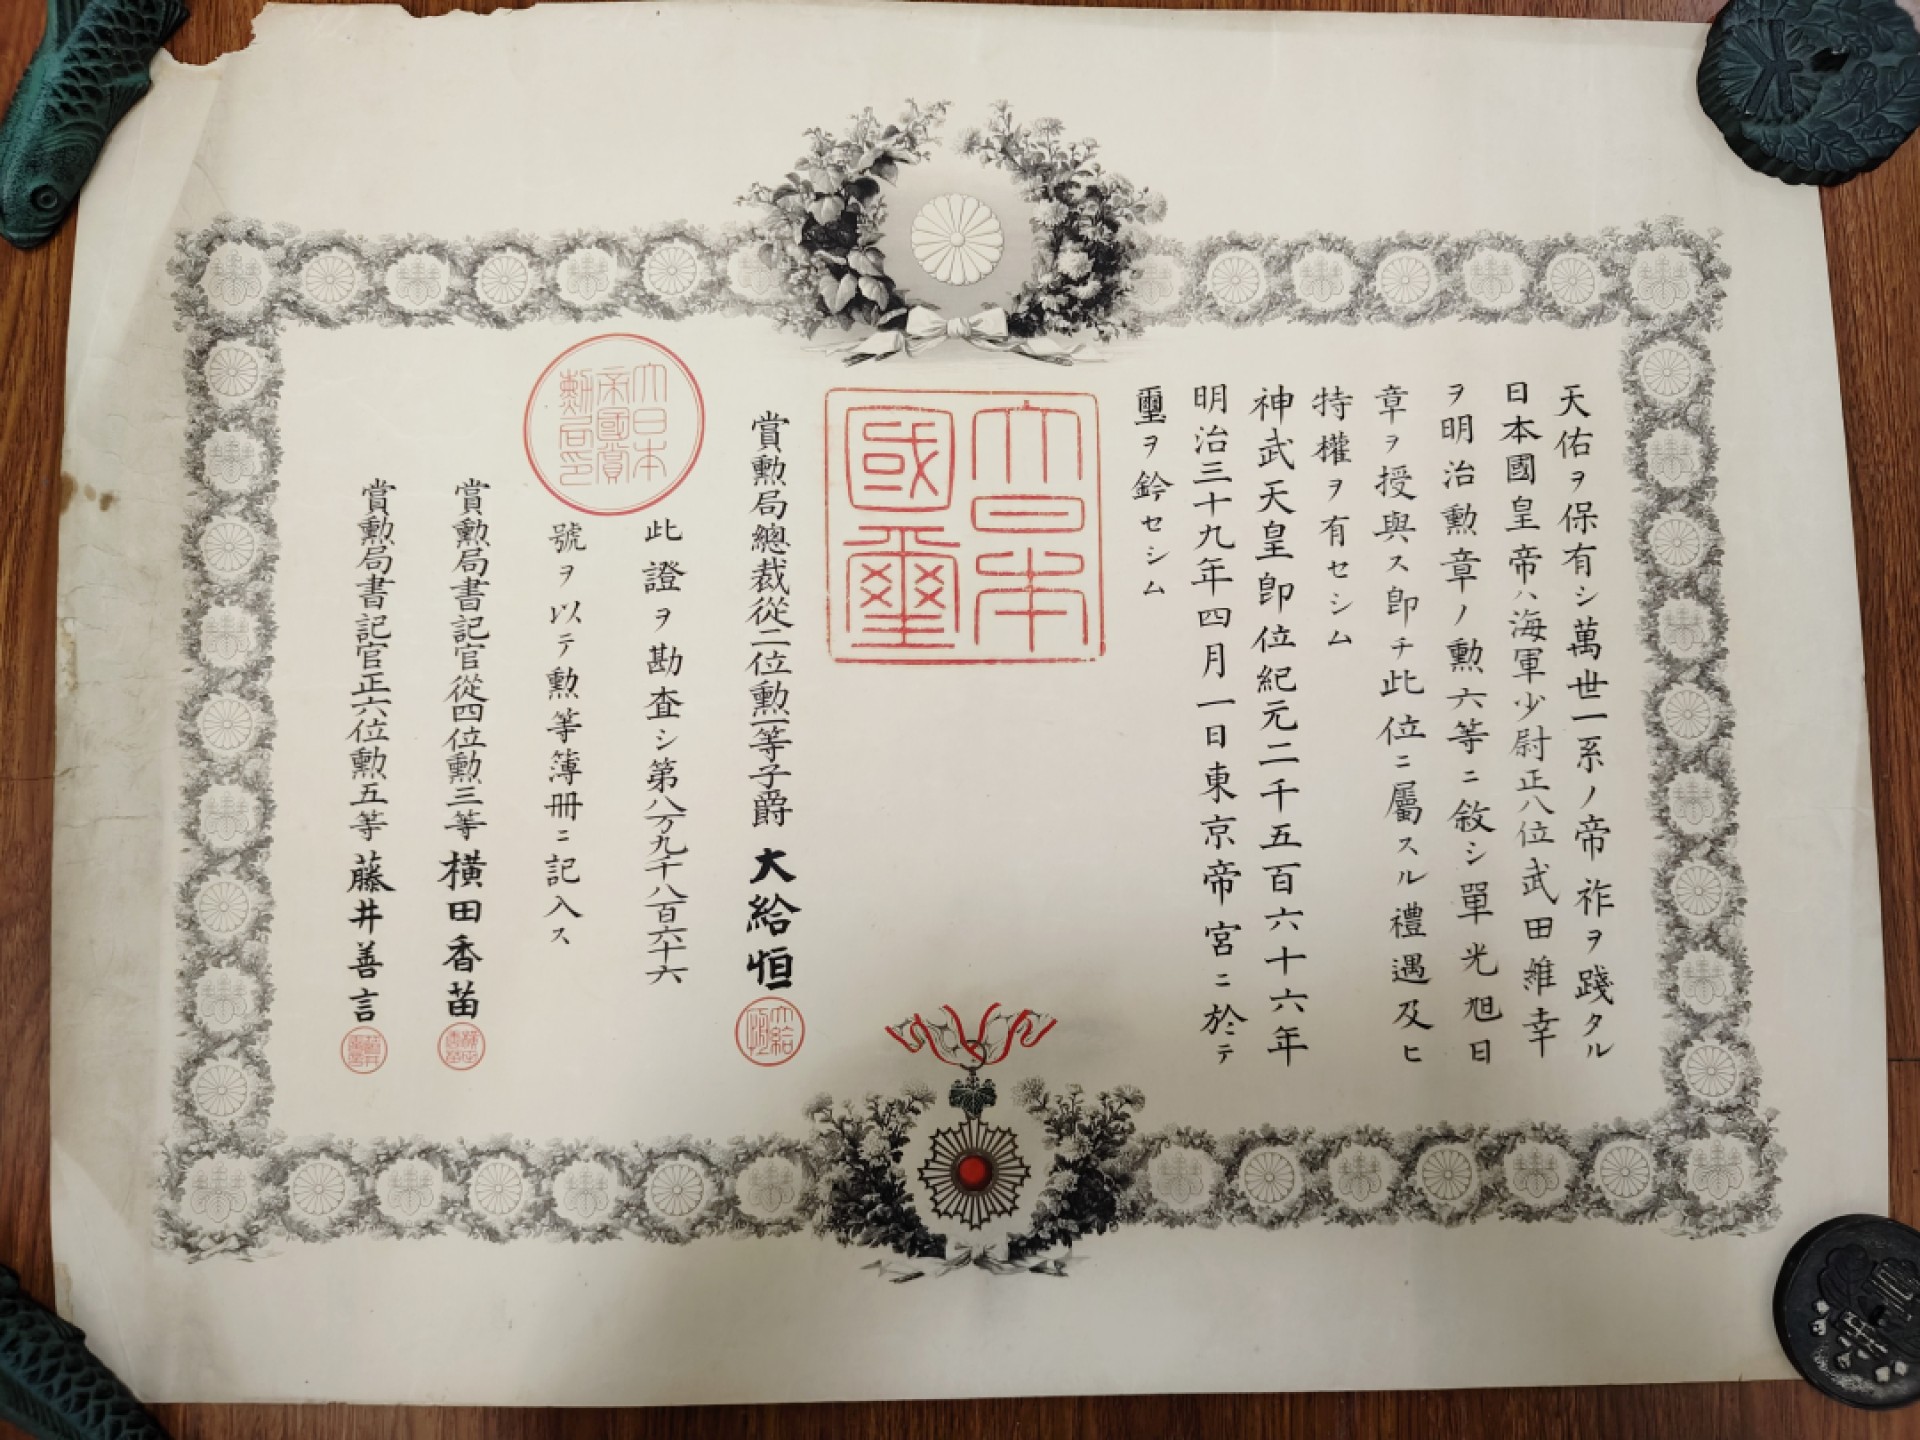 天佑ヲ保有シ萬世一系ノ帝祚ヲ踐タル
日本國皇帝ハ海軍少尉正八位武田維幸
ヲ明治勲章ノ勲六等ニ敘シ單光旭日
章ヲ授與ス卽チ此位ニ屬スル禮遇及ヒ
特權ヲ有セシム
神武天皇卽位紀元二千五百六十六年
明治三十九年四月一日東京帝宮ニ於テ
璽ヲ鈐セシム
大日本
國璽
賞勲局總裁從二位勲一等子爵 大給恒
此證ヲ勘査シ第八万九千八百六十六
號ヲ以テ勲等簿冊ニ記入ス
大日本
帝國賞
勲局印
賞勲局書記官從四位勲三等 橫田香苗
賞勲局書記官正六位勲五等 藤井善言